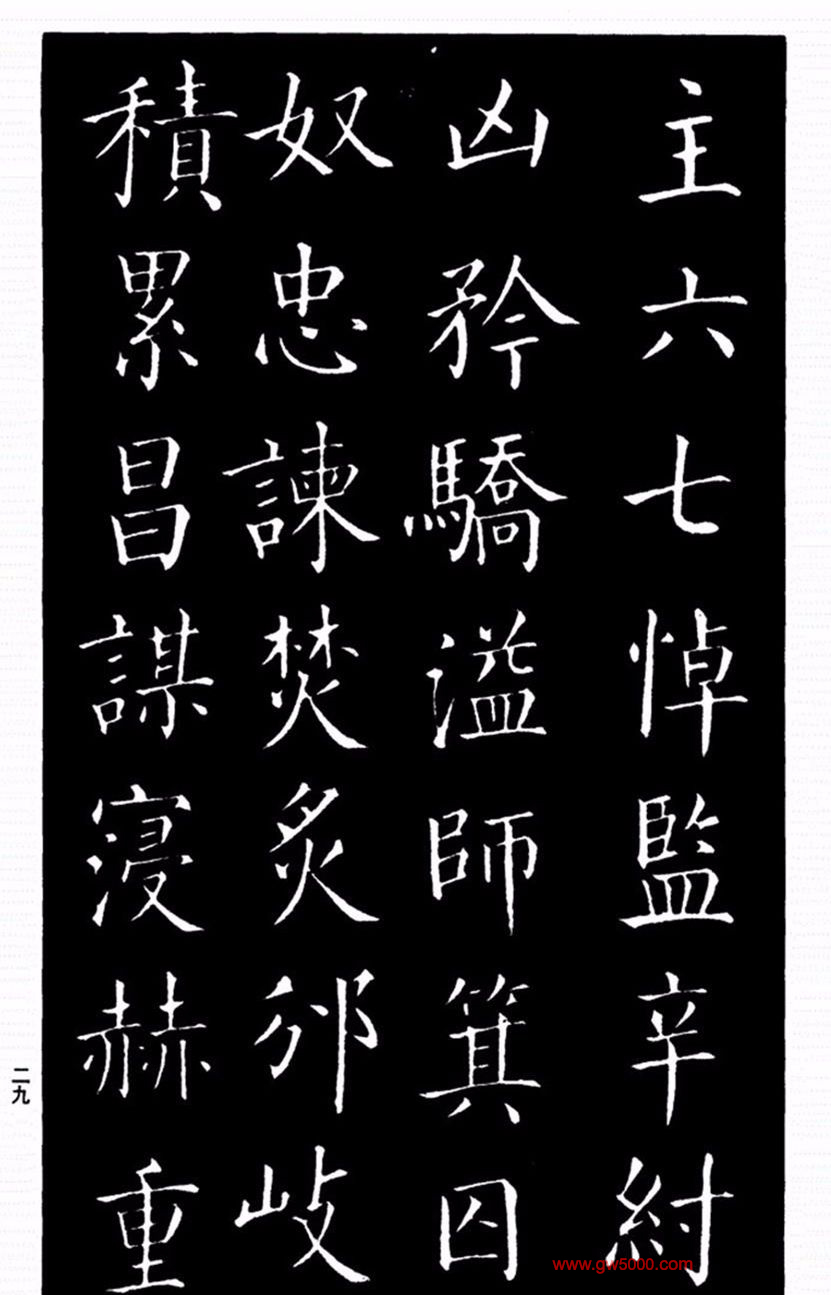 主六七悼監辛紂
凶矜驕溢師箕囚
奴忠諫焚炙邠岐
積累昌謀寖赫重
二九
www.gw5000.com